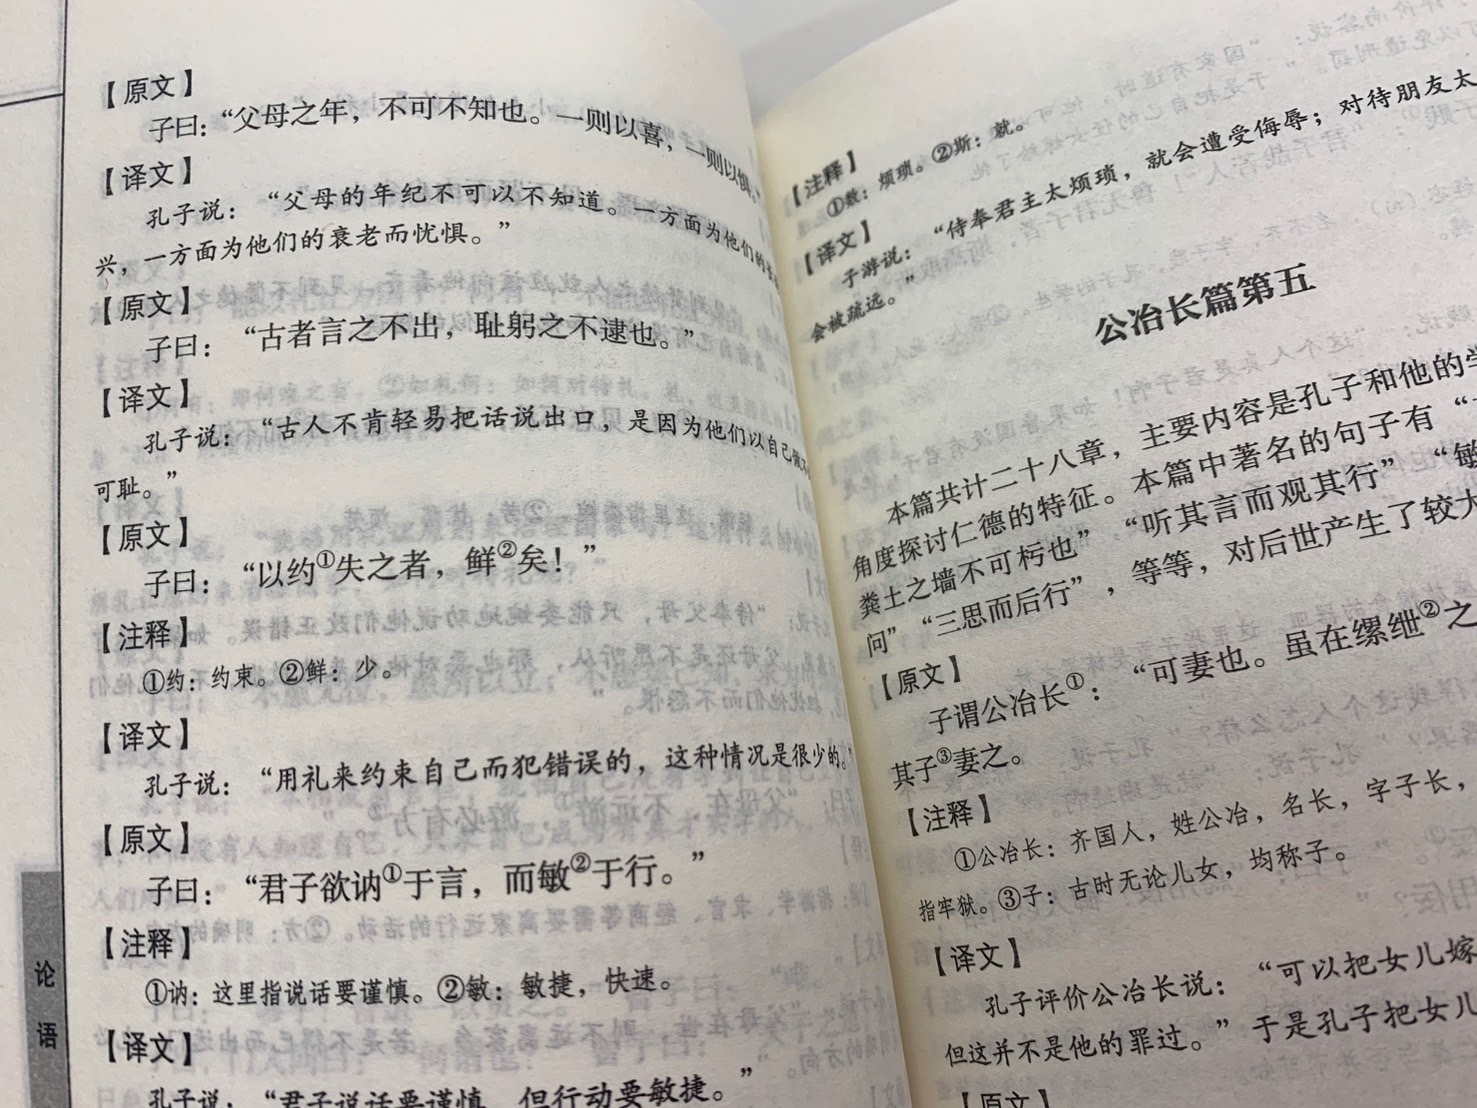 【原文】
子曰：“父母之年，不可不知也。一则以喜，一则以惧。”
【译文】
孔子说：“父母的年纪不可以不知道。一方面为他们的
兴，一方面为他们的衰老而忧惧。”
【原文】
子曰：“古者言之不出，耻躬之不逮也。”
【译文】
孔子说：“古人不肯轻易把话说出口，是因为他们以自己做不
可耻。”
【原文】
子曰：“以约①失之者，鲜②矣！”
【注释】
①约：约束。②鲜：少。
【译文】
孔子说：“用礼来约束自己而犯错误的，这种情况是很少的。”
【原文】
子曰：“君子欲讷①于言，而敏②于行。”
【注释】
①讷：这里指说话要谨慎。②敏：敏捷，快速。
【译文】
孔子说：“君子说话要谨慎，但行动要敏捷。”
论语
【注释】
①数：烦琐。②斯：就。
【译文】
子游说：“侍奉君主太烦琐，就会遭受侮辱；对待朋友太
会被疏远。”
公冶长篇第五
本篇共计二十八章，主要内容是孔子和他的学
角度探讨仁德的特征。本篇中著名的句子有“
粪土之墙不可杇也”“听其言而观其行”“敏
问”“三思而后行”，等等，对后世产生了较大
【原文】
子谓公冶长①：“可妻也。虽在缧绁②之
其子③妻之。
【注释】
①公冶长：齐国人，姓公冶，名长，字子长，
指牢狱。③子：古时无论儿女，均称子。
【译文】
孔子评价公冶长说：“可以把女儿嫁
但这并不是他的罪过。”于是孔子把女儿
【原文】